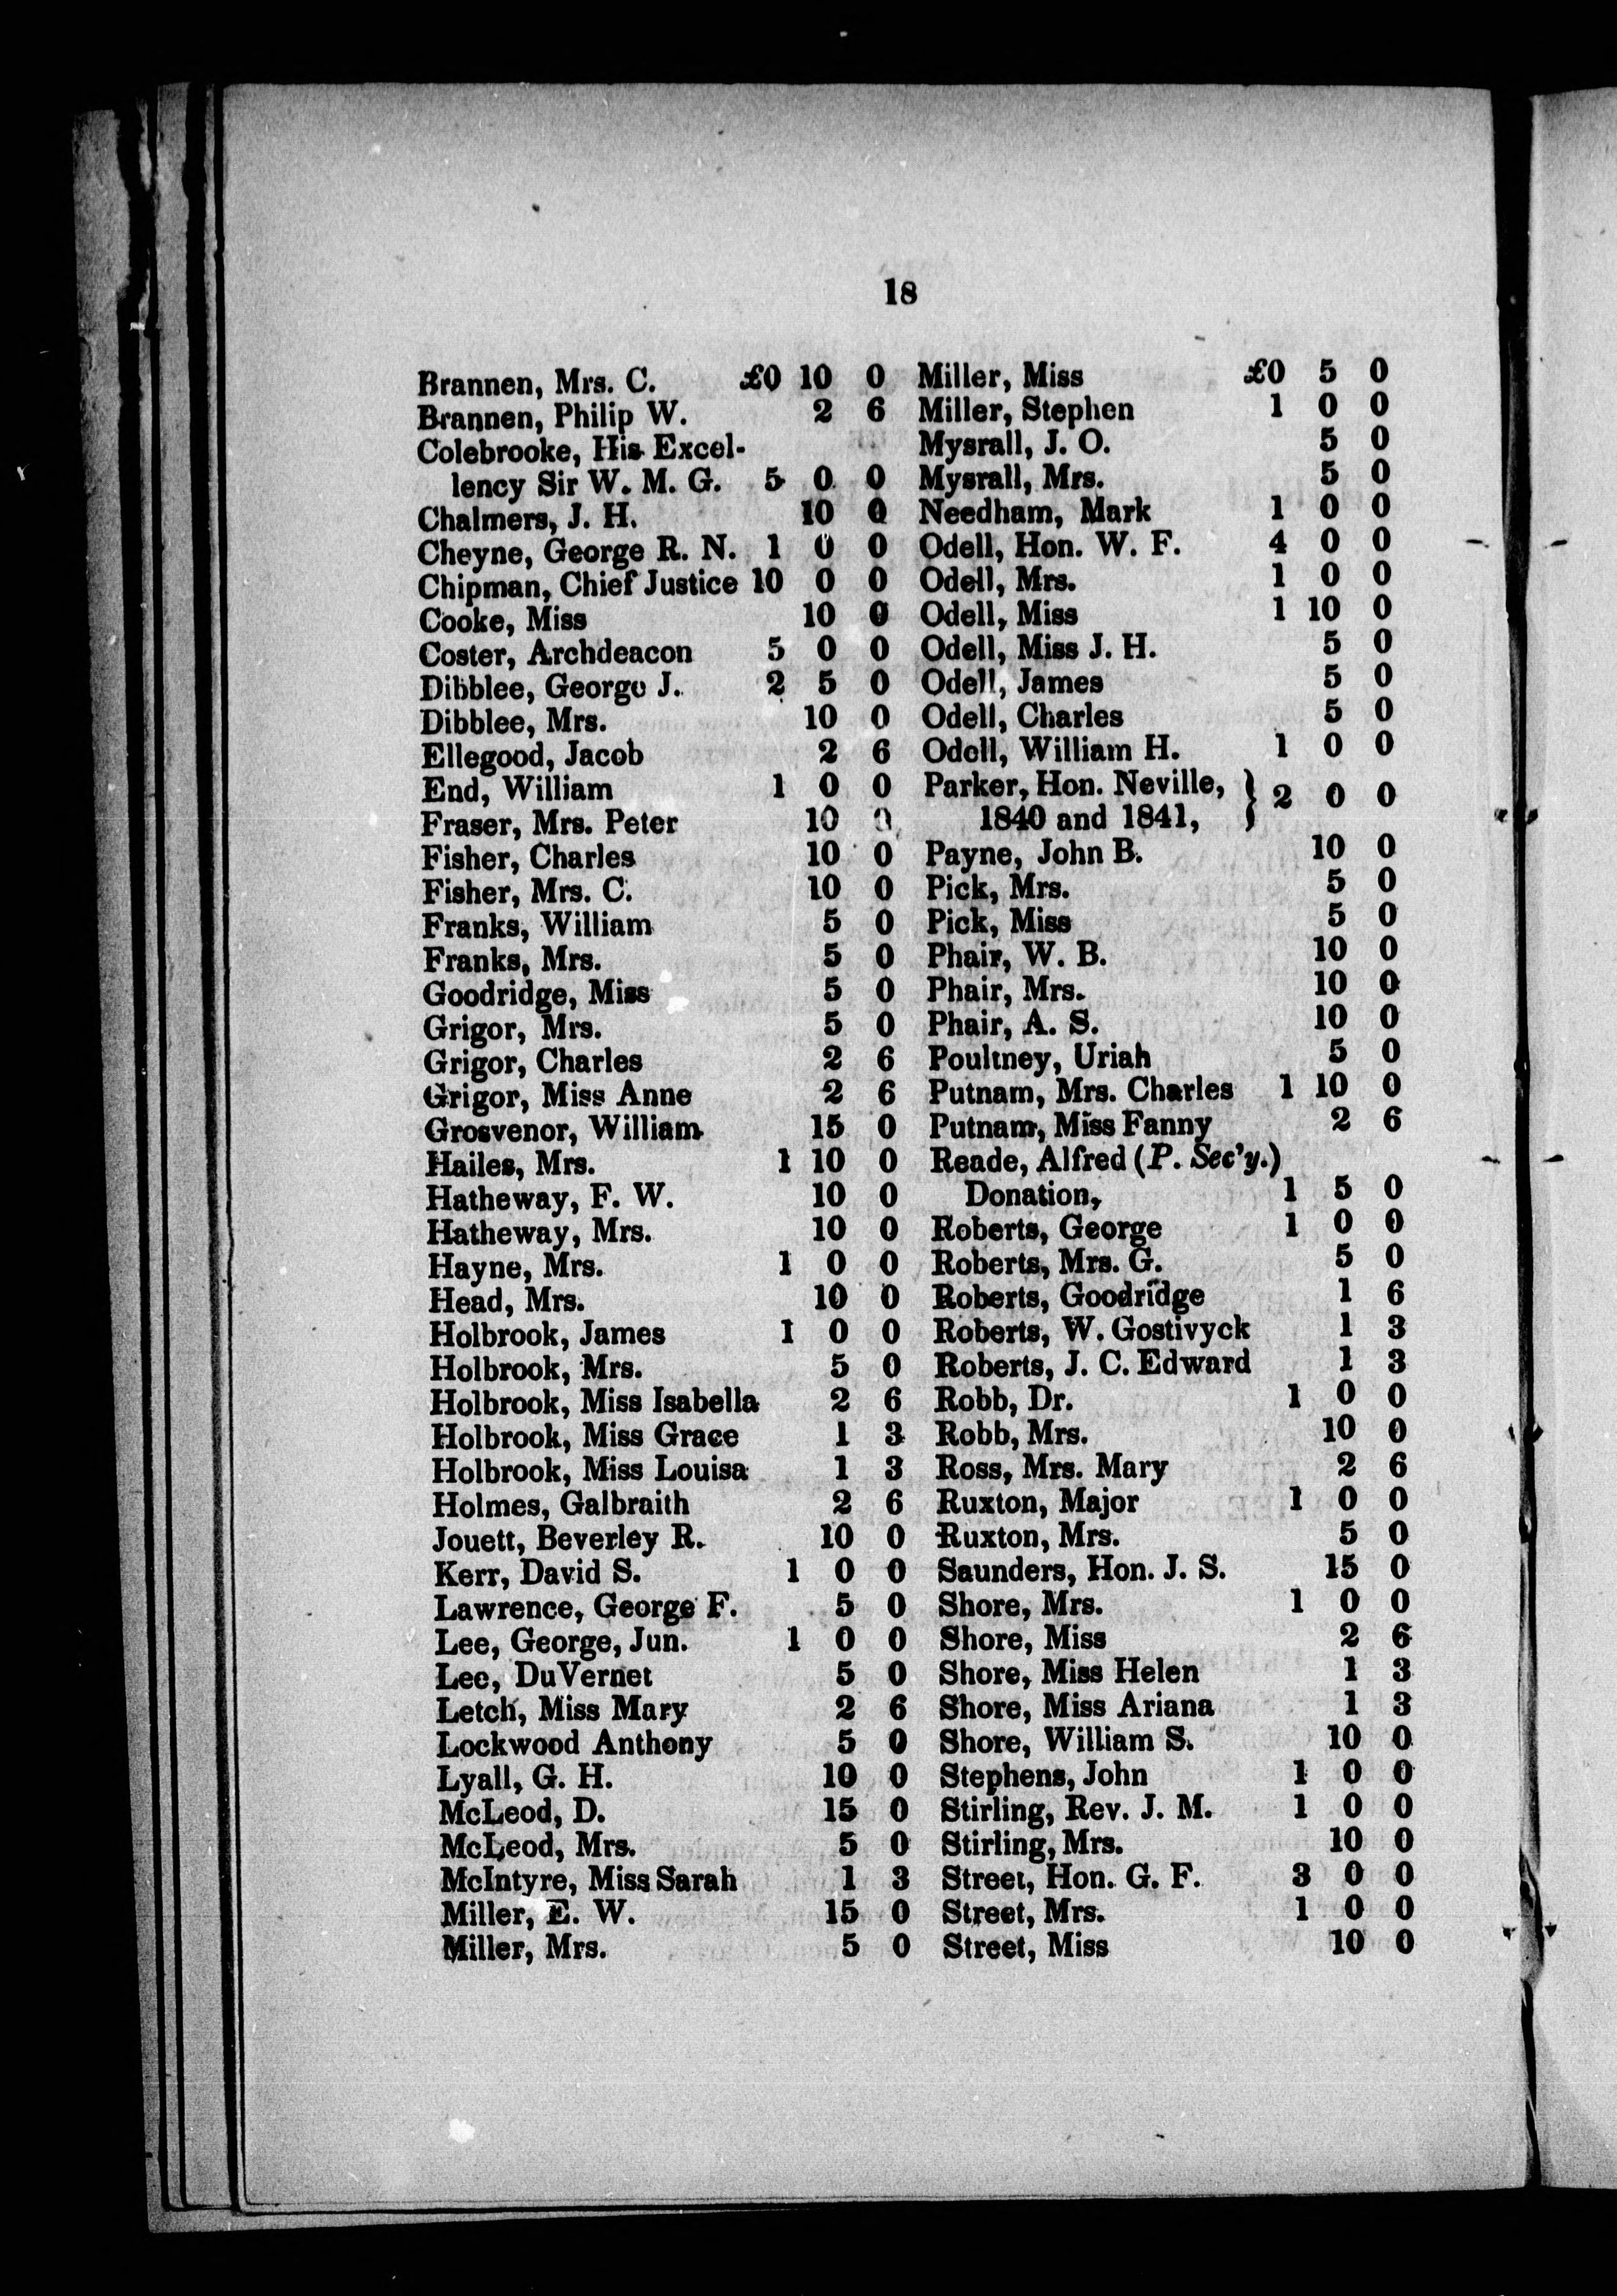 18
Brannen, Mrs. C. £0 10 0
Brannen, Philip W. 2 6
Colebrooke, His Excel-
lency Sir W. M. G. 5 0 0
Chalmers, J. H. 10 0
Cheyne, George R. N. 1 0 0
Chipman, Chief Justice 10 0 0
Cooke, Miss 10 0
Coster, Archdeacon 5 0 0
Dibblee, George J. 2 5 0
Dibblee, Mrs. 10 0
Ellegood, Jacob 2 6
End, William 1 0 0
Fraser, Mrs. Peter 10 0
Fisher, Charles 10 0
Fisher, Mrs. C. 10 0
Franks, William 5 0
Franks, Mrs. 5 0
Goodridge, Miss 5 0
Grigor, Mrs. 5 0
Grigor, Charles 2 6
Grigor, Miss Anne 2 6
Grosvenor, William 15 0
Hailes, Mrs. 1 10 0
Hatheway, F. W. 10 0
Hatheway, Mrs. 10 0
Hayne, Mrs. 1 0 0
Head, Mrs. 10 0
Holbrook, James 1 0 0
Holbrook, Mrs. 5 0
Holbrook, Miss Isabella 2 6
Holbrook, Miss Grace 1 3
Holbrook, Miss Louisa 1 3
Holmes, Galbraith 2 6
Jouett, Beverley R. 10 0
Kerr, David S. 1 0 0
Lawrence, George F. 5 0
Lee, George, Jun. 1 0 0
Lee, DuVernet 5 0
Letch, Miss Mary 2 6
Lockwood Anthony 5 0
Lyall, G. H. 10 0
McLeod, D. 15 0
McLeod, Mrs. 5 0
McIntyre, Miss Sarah 1 3
Miller, E. W. 15 0
Miller, Mrs. 5 0
Miller, Miss £0 5 0
Miller, Stephen 1 0 0
Mysrall, J. O. 5 0
Mysrall, Mrs. 5 0
Needham, Mark 1 0 0
Odell, Hon. W. F. 4 0 0
Odell, Mrs. 1 0 0
Odell, Miss 1 10 0
Odell, Miss J. H. 5 0
Odell, James 5 0
Odell, Charles 5 0
Odell, William H. 1 0 0
Parker, Hon. Neville, } 2 0 0
1840 and 1841,
Payne, John B. 10 0
Pick, Mrs. 5 0
Pick, Miss 5 0
Phair, W. B. 10 0
Phair, Mrs. 10 0
Phair, A. S. 10 0
Poultney, Uriah 5 0
Putnam, Mrs. Charles 1 10 0
Putnam, Miss Fanny 2 6
Reade, Alfred (P. Sec'y.)
Donation, 1 5 0
Roberts, George 1 0 0
Roberts, Mrs. G. 5 0
Roberts, Goodridge 1 6
Roberts, W. Gostivyck 1 3
Roberts, J. C. Edward 1 3
Robb, Dr. 1 0 0
Robb, Mrs. 10 0
Ross, Mrs. Mary 2 6
Ruxton, Major 1 0 0
Ruxton, Mrs. 5 0
Saunders, Hon. J. S. 15 0
Shore, Mrs. 1 0 0
Shore, Miss 2 6
Shore, Miss Helen 1 3
Shore, Miss Ariana 1 3
Shore, William S. 10 0
Stephens, John 1 0 0
Stirling, Rev. J. M. 1 0 0
Stirling, Mrs. 10 0
Street, Hon. G. F. 3 0 0
Street, Mrs. 1 0 0
Street, Miss 10 0